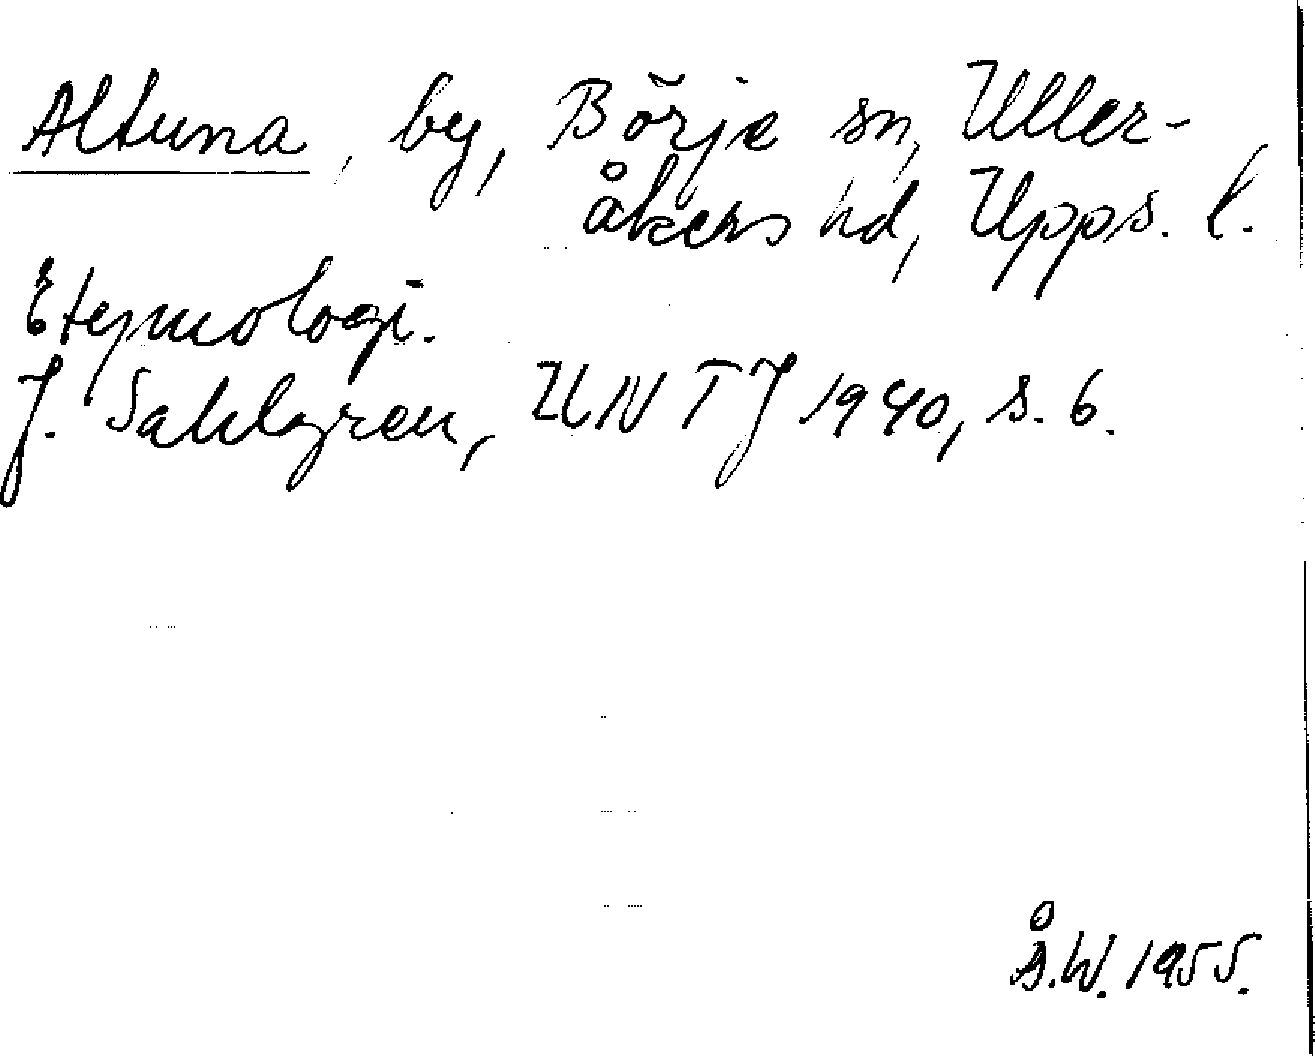 Altuna, by, Börje sn, Uller-
åkers hd, Upps. l.
Etymologi.
J. Sahlgren, UNTJ 1940, s. 6.
Å.W. 1955.